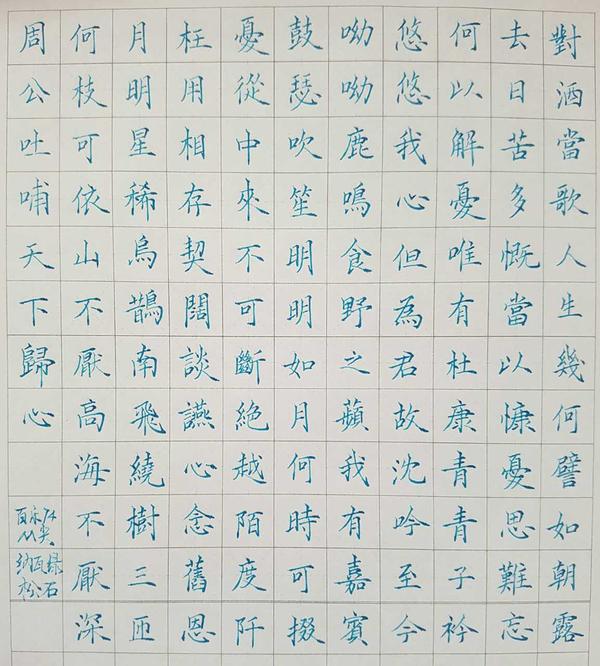 對酒當歌人生幾何譬如朝露
去日苦多慨當以慷憂思難忘
何以解憂唯有杜康青青子衿
悠悠我心但為君故沈吟至今
呦呦鹿鳴食野之蘋我有嘉賓
鼓瑟吹笙明明如月何時可掇
憂從中來不可斷絕越陌度阡
枉用相存契闊談讌心念舊恩
月明星稀烏鵲南飛繞樹三匝
何枝可依山不厭高海不厭深
周公吐哺天下歸心
百乐74
M尖
纳瓦绿
松石